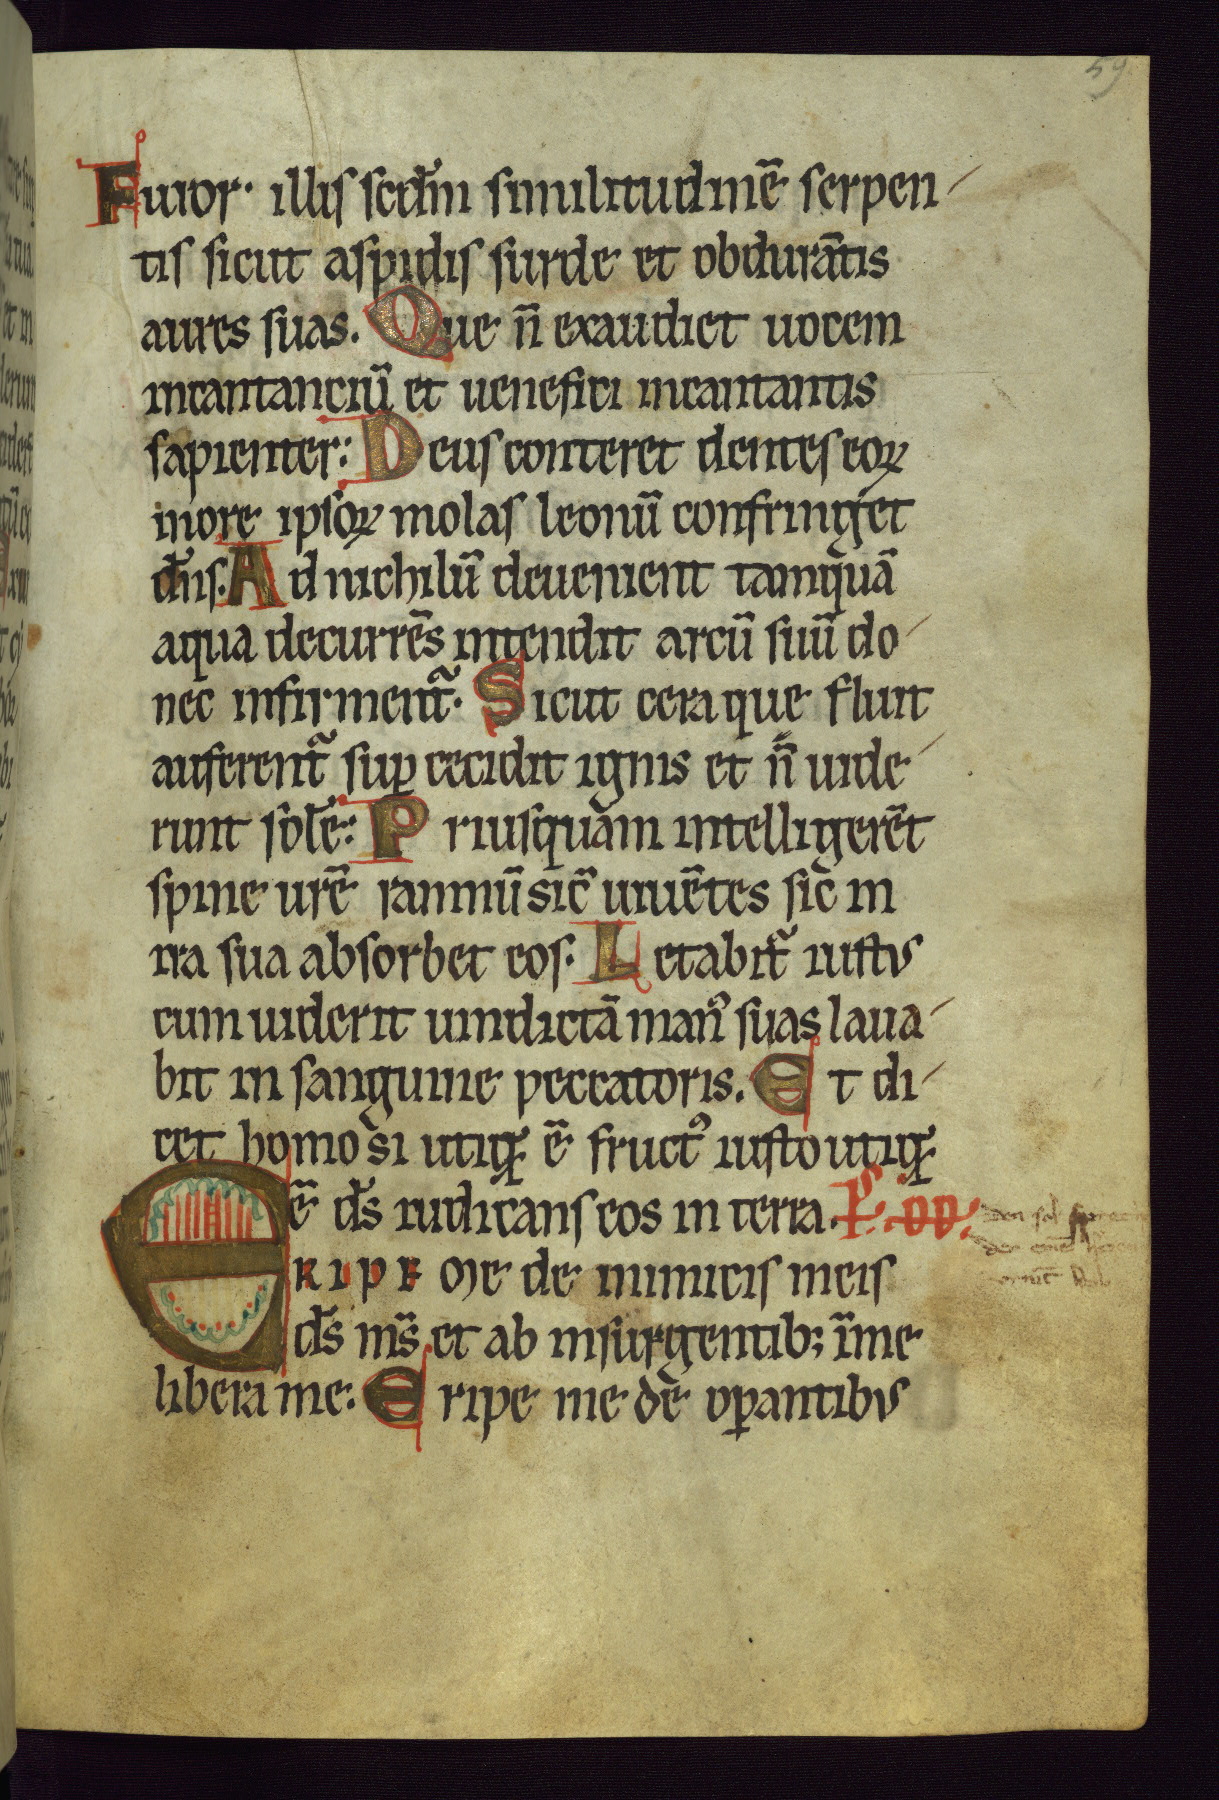 59
Furor illis scdm similitudinē serpen
tis sicut aspidis surde et obdurātis
aures suas. Que n̄ exaudiet uocem
incantanciū et uenefici incantantis
sapienter: Deus conteret dentes eoꝝ
in ore ipsoꝝ molas leonū confringet
dn̄s. Ad nichilū deuenient tamquā
aqua decurrēs intendit arcū suū do
nec infirment᷑. Sicut cera que fluit
auferent᷑ suꝑ cecidit ignis et n̄ uide
runt solē: Priusquam intelligerēt
spine urē ramnū sic̄ uiuētes sic̄ in
ira sua absorbet eos. Letabit᷑ iustus
cum uiderit uindictā manꝰ suas laua
bit in sanguine peccatoris. Et di
cet homo si utiqꝫ ē fructꝰ iusto utiqꝫ
ē ds̄ iudicans eos in terra.
ERIPE Me de inimicis meis
ds̄ ms̄ et ab insurgentibꝫ ī me
libera me: Eripe me de oꝑantibus